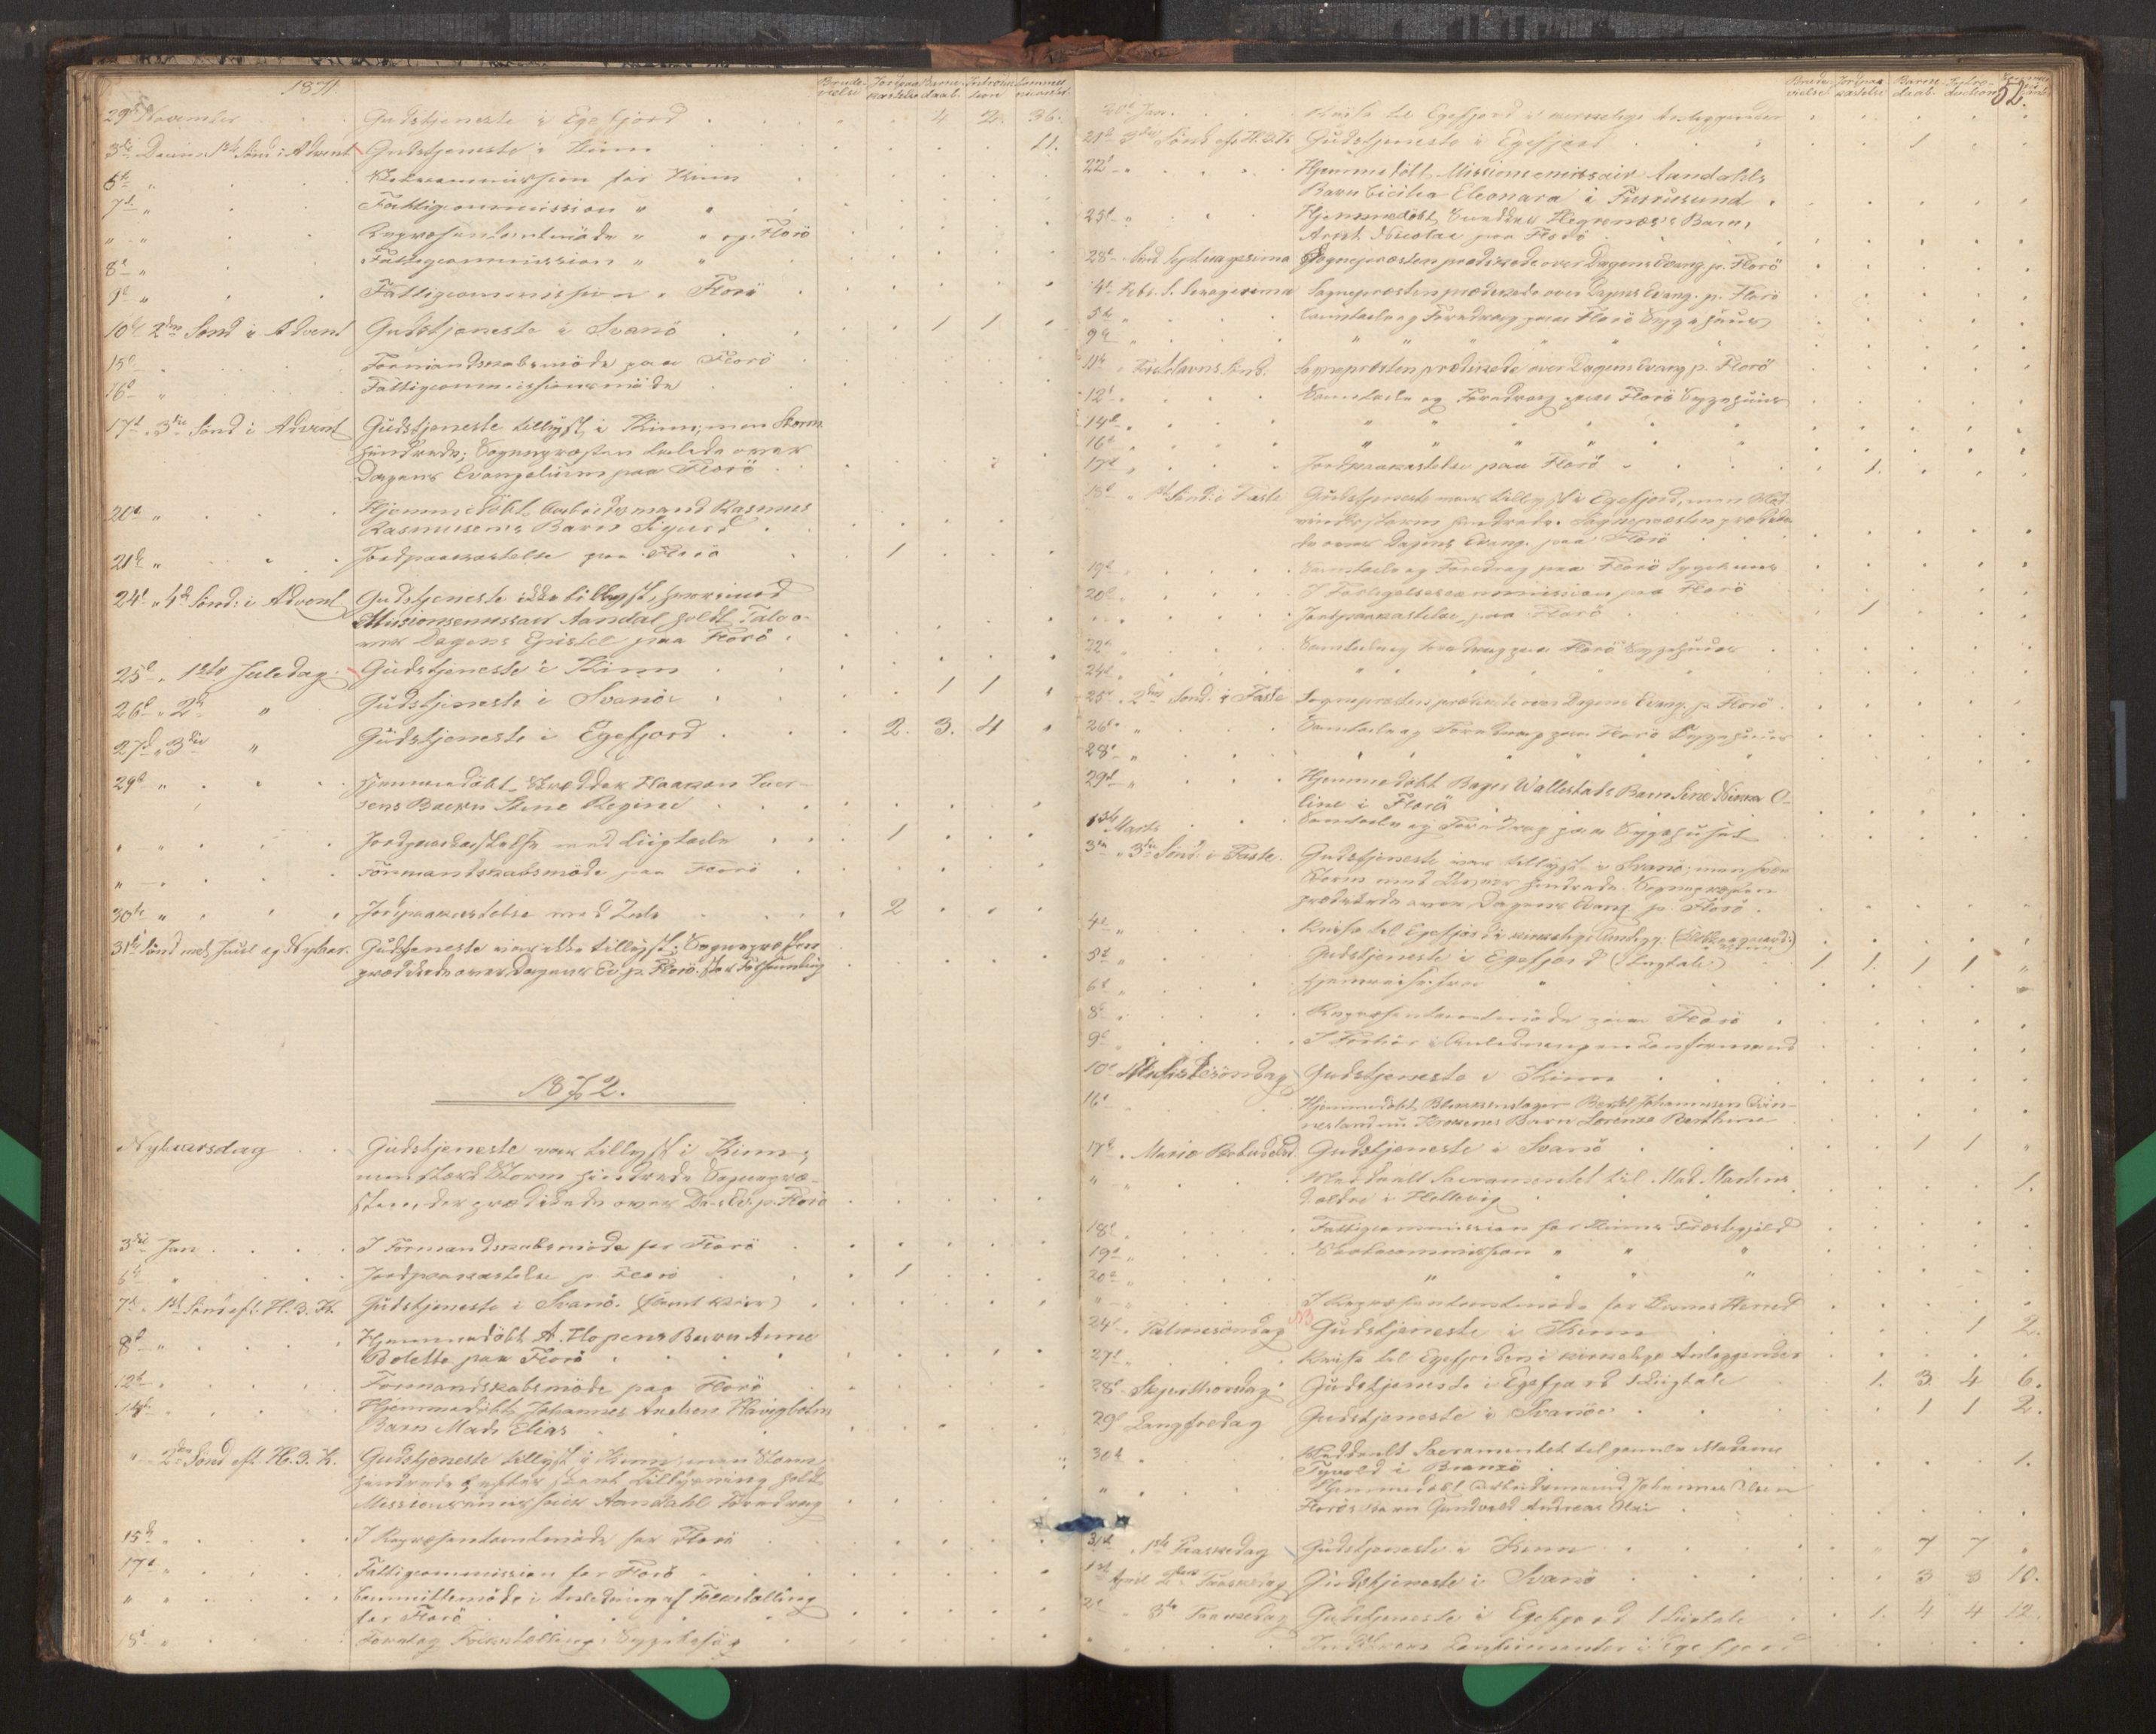 1871.
Brude- Jordpaa- Barne- Introduc- Commu-
vielse kastelse daab. tion nicanter.
29de November Gudstjeneste i Egefjord 4. 2. 36.
3die Decemb. 1ste Sönd i Advent Gudstjeneste i Kinn 11.
5te " Skolecommission for Kinn
7de " Fattigcommission " "
" - " Repræsentantmöde " " og Florö
8de " Fattigcommission " "
9de " Fattigcommission " Florö
10de 2den Sönd i Advent Gudstjeneste i Svanö 1 1
15de " Formandskabsmöde paa Florö
16de " Fattigcommissionsmöde
17de " 3die Sönd i Advent Gudstjeneste tillyst i Kinn; men Storm
hindrede; Sognepræsten talede over
Dagens Evangelium paa Florö
20de " Hjemmedöbt Arbeidsmand Rasmus
Rasmusens Barn Sigurd
21de " Jordpaakastelse paa Florö 1
24de " 4de Sönd: i Advent Gudstjeneste ikke tillyst, hvorimod
Missionsemissair Aandal holdt Tale o-
ver Dagens Epistel paa Florö
25de " 1ste Juledag Gudstjeneste i Kinn
26de " 2den " Gudstjeneste i Svanöe 1 1
27de " 3die " Gudstjeneste i Egefjord 2. 3. 4
29de " Hjemmedöbt Skrædder Haakon Iver-
sens Barn Stine Regine
" - " Jordpaakastelse med Liigtale 1
" - " Formandskabsmöde paa Florö
30te " Jordpaakastelse med Tale 2
31te Sönd mel. Juul og Nytaar. Gudstjeneste var ikke tillyst; Sognepræsten
prædikede over Dagens Ev. p. Florö. Stor Forsamling
1872.
Nytaarsdag Gudstjeneste var tillyst i Kinn;
men stærk Storm hindrede Sognepræ-
sten, der prædikede over Da. Ev. p. Florö
3die Jan I Formandskabsmöde for Florö
6te " Jordpaakastelse p. Florö 1
7de " 1ste Sönd eft. H. 3. K. Gudstjeneste i Svanö.
8de " Hjemmedöbt A. Hopens Barn Anne
Bolette paa Florö
12te " Formandskabsmöde paa Florö
14de " Hjemmedöbt Johannes Axelsen
Barn Mads Elias
" 2den Sönd eft. H. 3. K. Gudstjeneste tillyst i Kinn, men Storm
hindrede; efter skeet Tillysning holdt
Missionsemissair Aandahl Foredrag
15de " I Repræsentantmöde for Florö
17de " Fattigcommission for Florö
" " Committemöde i Anledning af Folketælling
for Florö
18de "
52.
Brude- Jordpaa- Barne- Intro-
vielse kastelse daab. duction
20de Jan. Reise til Egefjord i kirkelige Anliggender
21de " 3die Sönd eft. H. 3. K. Gudstjeneste i Egefjord 1
22de " Hjemmedöbt Missionsemissair Aandahls
Barn Cicilia Eleonara i Furusund
25de " Hjemmedöbt Skrædder Hegrenæs's Barn,
Nicolai paa Florö
28de " Sönd Septuagesima Sognepræsten prædikede over Dagens Evang. p. Florö
4de Febr. S. Sexagesima Sognepræsten prædikede over Dagens Evang. p. Florö
5te " Samtale og Foredrag paa Florö Sygehuus
9de " " " " " "
11te " Fastelavns Sönd. Sognepræsten prædikede over Dagens Evang p. Florö
12te " Samtale og Foredrag paa Florö Sygehuus
14de " " " " " "
16de " " " " " "
17de " Jordpaakastelse paa Florö 1.
18de " 1ste Sönd: i Faste Gudstjeneste var tillyst i Egefjord, men
Storm hindrede. Sognepræsten prædike-
de over Dagens Evang. paa Florö
19de " Samtale og Foredrag paa Florö Sygehuus
20de " I Forligelsescommission paa Florö
" " Jordpaakastelse paa Florö 1
22de " Samtale og Foredrag paa Florö Sygehuus
24de " " " " " "
25de " 2den Sönd. i Faste Sognepræsten prædikede over Dagens Evang. p. Florö
26de " Samtale og Foredrag paa Florö Sygehuus
28de " " " " " "
29de " Hjemmedöbt Bager Wallestads Barn O-
line i Florö
1ste Marts Samtale og Foredrag paa Sygehuset
3die " 3die Sönd. i Faste. Gudstjeneste var tillyst i Svanö; men svær
Storm med hindrede. Sognepræsten
prædikede over Dagens Evang p. Florö.
4de " Reise til Egefjord i kirkelige Anligg.
5te " Gudstjeneste i Egefjord (Liigtale) 1. 1. 1 1 "
6te " Hjemreise fra "
8de " Repræsentantmöde paa Florö
9de " I Florö i Anledning en Confirmand
10de Midfastesöndag Gudstjeneste i Kinn
16de " Hjemmedöbt Blikkenslager Johannesen
Barn Lorense Berthine
17de " Mariæ Bebudelsesd. Gudstjeneste i Svanö 1 1 "
" - " Meddeelt Sacramentet til Mad. Martens
i Hellevig 1.
18de " Fattigcommission for Kinns Præstegjeld
19de " Skolecommission " " "
20de " " " "
" " I Repræsentantmöde for Kinns Herred
24de " Palmesöndag NB Gudstjeneste i Kinn 1 2.
27de " Reise til Egefjorden i kirkelige Anliggender
28de " Skjærthorsdag Gudstjeneste i Egefjord 1 Liigtale 1. 3. 4 6.
29de Langfredag Gudstjeneste i Svanöe 1 1 2.
30te " Meddeelt Sacramentet til gamle Madame
i Bransö 1.
" " Hjemmedöbt Arbeidsmand Johannes Olsen
Florös Barn Gundvald Andreas
31te " 1ste Paaskedag Gudstjeneste i Kinn " 7 7 "
1ste April 2den Paaskedag Gudstjeneste i Svanö 3 3 10.
2den " 3die Paaskedag Gudstjeneste i Egefjord 1 Liigtale 1. 4 4 12.
Confirmanter i Egefjord